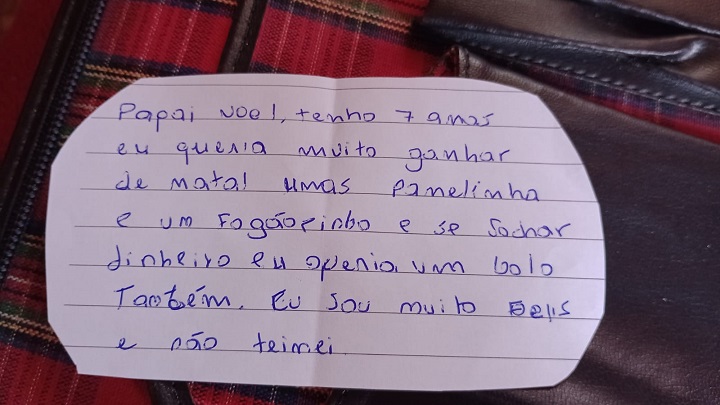 Papai Noel, tenho 7 anas
eu queria muito ganhar
de natal umas panelinha
e um Fogãozinho e se Sochar
dinheiro eu queria um bolo
Também. Eu sou muito
e não teimei